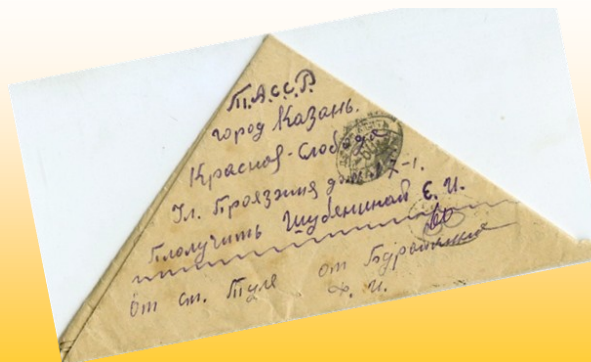 Т.А.С.С.Р.
город Казань.
Красноя-Слобода
Ул. Проязжия дом 17-1.
Плолучить Шубяниной Е. И.
От ст. Тула от
Ф. И.